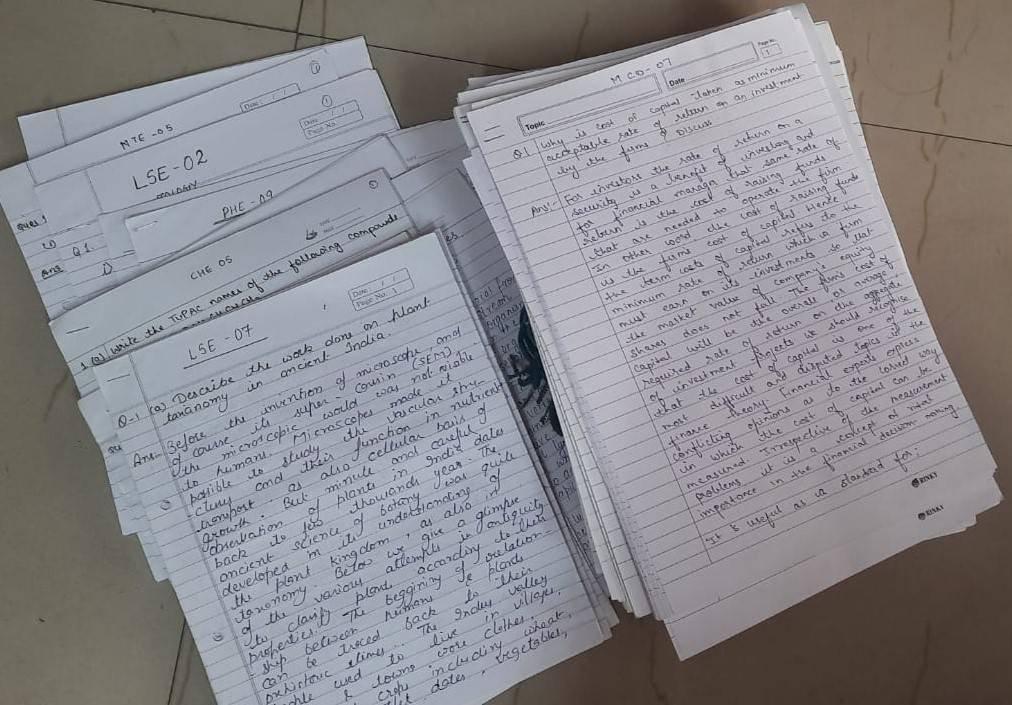 MTE-05
①
Date: / /
LSE-02
①
Date / /
Page No.
ZOOLOGY
Ques 1
Q1.
Ans
PHE-09
①
CHE 05
1 (a) write the IUPAC names of the following compounds
LSE-07
Date: / /
Page No. 1
Q-1 (a) Describe the work done on plant
taxonomy in ancient India.
Ans:- Before the invention of microscope, and
of course its super cousin (SEM)
the microscopic would was not visible
to humans. Microscopes made it
possible to study the vascular stru-
ctures and their function in nutrient
transport as also cellular basis of
growth. But minute and careful
observation of plants in India dates
back to 500 thousands year. The
ancient science of botany was quite
developed in its understanding of
the plant kingdom, as also in
taxonomy. Below we give a glimpse
of the various attempts in antiquity
to classify plants according to their
properties. The beggining of relation-
ship between humans & plants
can be traced back to their
prehistoric times. The Indus valley
people used to live in villages,
& towns, wore clothes,
crops including wheat,
dates, vegetables,
MCO-07
Topic
Date
Page No.
1
Q.1 Why is cost of capital taken as minimum
acceptable rate of return on an investment
by the firms? Discuss
Ans:- For investors the rate of return on a
security is a benefit of investing and
for financial managn that same rate of
return is the cost of raising funds
that are needed to operate the firm.
In other word the cost of raising funds
is the firms cost of capital. Hence
the term costs of capital refers to the
minimum rate of return which a firm
must earn on its investments so that
the market value of company's equity
shares does not fall. The firm's cost of
capital will be the overall or average
required rate of return on the aggregate
of investment projects. We should recognise
that the cost of capital is one of the
most difficult and disputed topics in the
finance theory. Financial experts express
conflicting opinions as to the correct way
in which the cost of capital can be
measured. Irrespective of the measurement
problems it is a concept of vital
importance in the financial decision making
It is useful as a standard for:
RINKY
RINKY